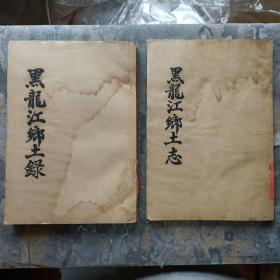 黑龍江鄉土錄
黑龍江鄉土志